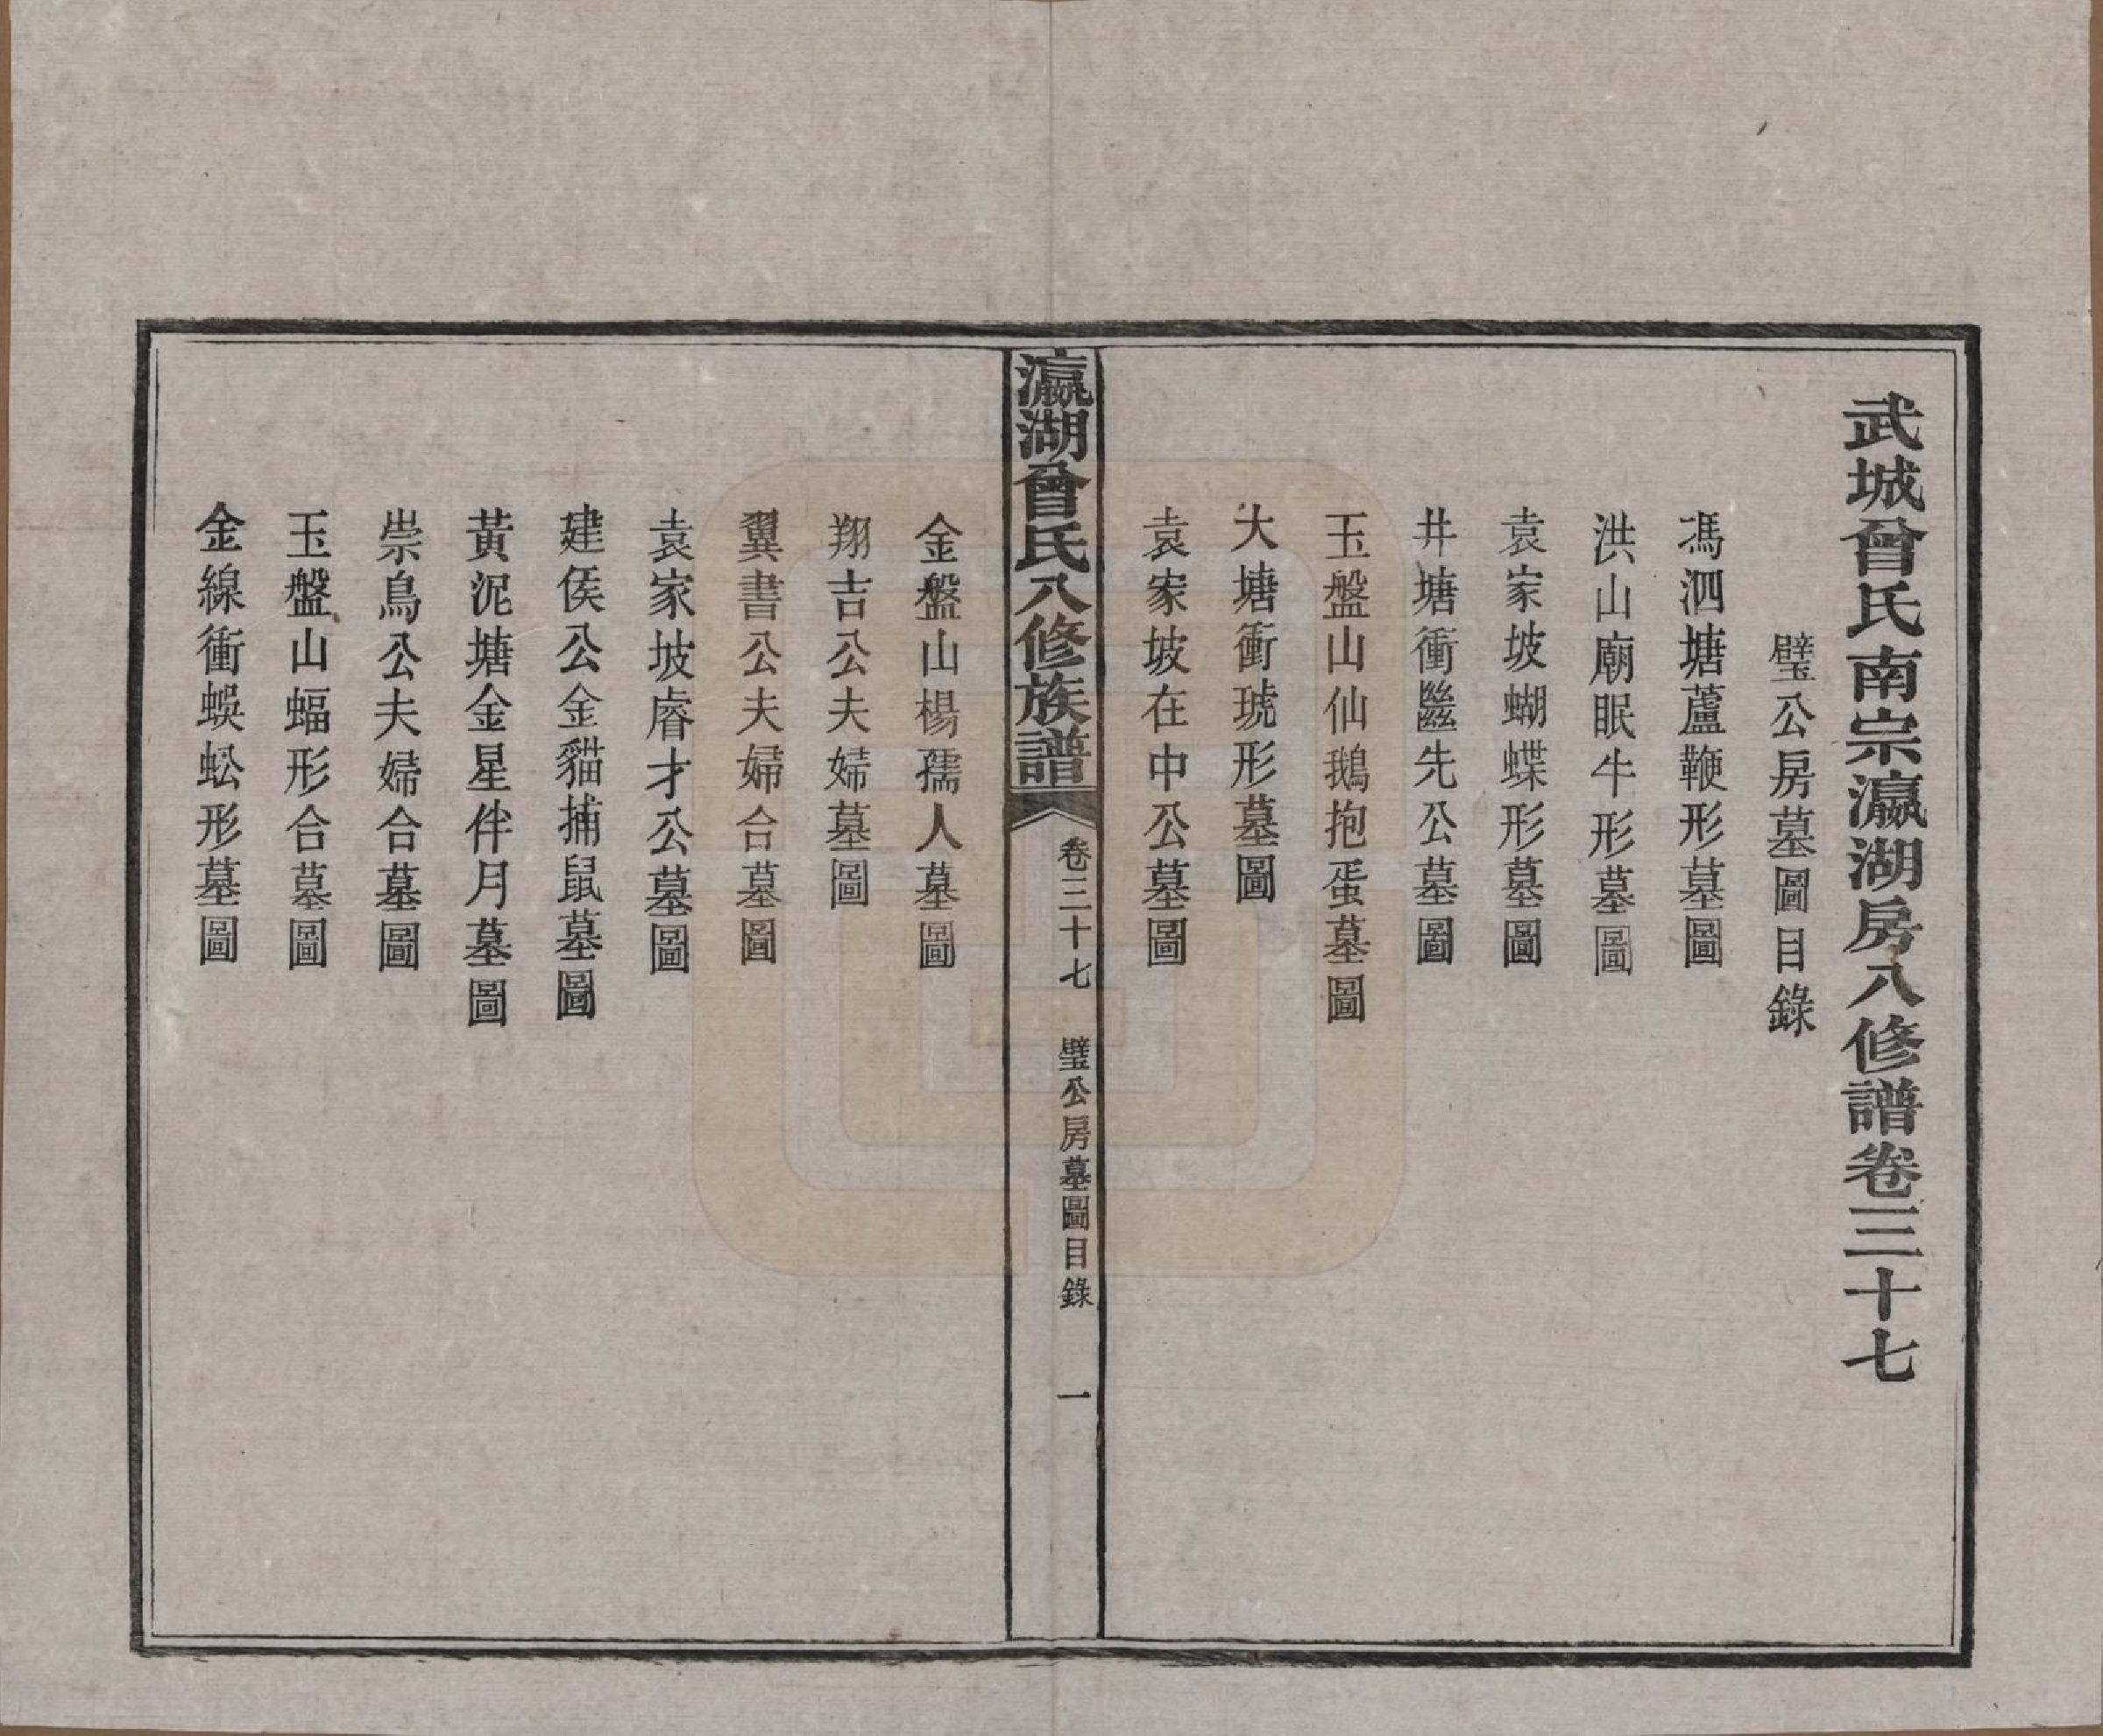 武城曾氏南宗瀛湖房八修譜卷三十七
璧公房墓圖目錄
馮泗塘蘆鞭形墓圖
洪山廟眠牛形墓圖
袁家坡蝴蝶形墓圖
井塘衝繼先公墓圖
玉盤山仙鵝抱蛋墓圖
大塘衝琥形墓圖
袁家坡在中公墓圖
瀛湖曾氏八修族譜
卷三十七
璧公房墓圖目錄
一
金盤山楊孺人墓圖
翔吉公夫婦墓圖
翼書公夫婦合墓圖
袁家坡睿才公墓圖
建侯公金貓捕鼠墓圖
黃泥塘金星伴月墓圖
崇鳥公夫婦合墓圖
玉盤山蝠形合墓圖
金線衝蜈蚣形墓圖